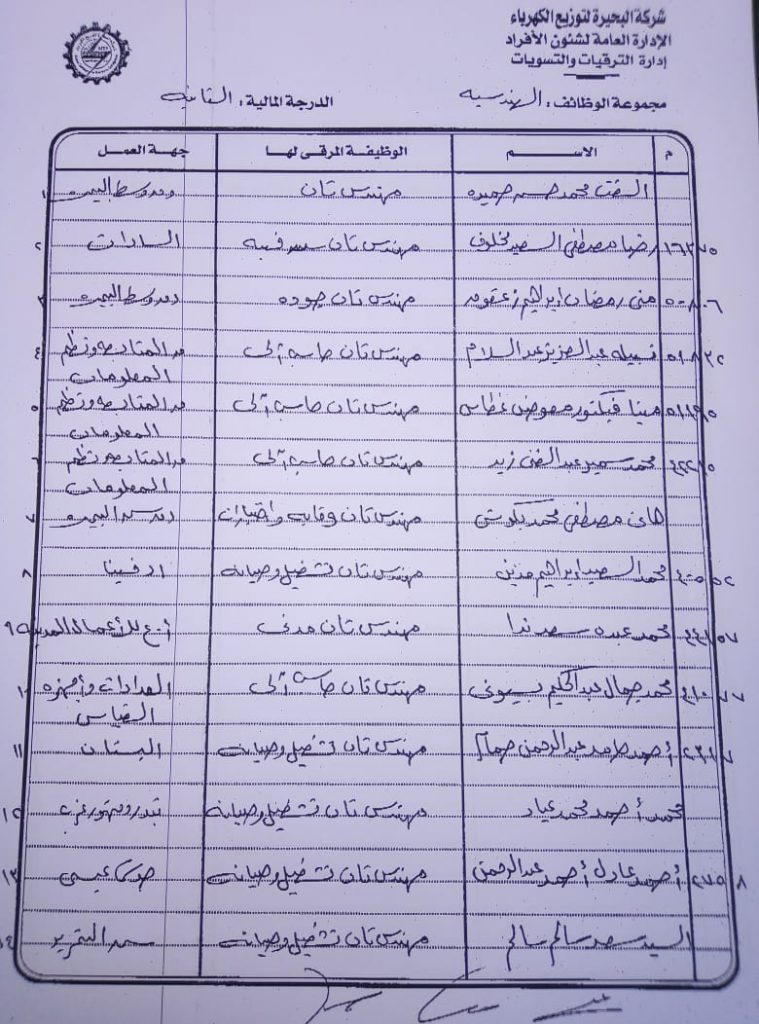 شركة البحيرة لتوزيع الكهرباء
الإدارة العامة لشئون الأفراد
إدارة الترقيات والتسويات
مجموعة الوظائف : الهندسيه الدرجة المالية : الثانيه
م الاســم الوظيفة المرقى لها جهة العمل
محمد حسن حميده مهندس ثان وسط البحيره ١
رضا مصطفى السعيد مخلوف مهندس ثان السادات ٢
٥٠٨٠٦ منى رمضان ابراهيم زعقوق مهندس ثان جوده وسط البحيره ٣
٥١٨٣٢ نبيله عبد العزيز عبد السلام مهندس ثان حاسب آلى المتابعه ونظم ٤
المعلومات
مينا فيكتور معوض غطاس مهندس ثان حاسب آلى المتابعه ونظم ٥
المعلومات
محمد سمير عبد الغنى زيد مهندس ثان حاسب آلى المتابعه ونظم ٦
المعلومات
هانى مصطفى محمد مهندس ثان وقايه واختبارات البحيره ٧
محمد السعيد ابراهيم مهندس ثان تشغيل وصيانه ادفينا ٨
محمد عبده سعد ندا مهندس ثان مدنى أ.ع للأعمال المدنيه ٩
محمد جمال عبد الحكيم بسيونى مهندس ثان حاسب آلى العدادات وأجهزه ١٠
القياس
أحمد حامد عبد الرحمن همام مهندس ثان تشغيل وصيانه البستان ١١
محمد أحمد محمد عياد مهندس ثان تشغيل وصيانه دمنهور غرب ١٢
٢٧٥٨ أحمد عادل أحمد عبد الرحمن مهندس ثان تشغيل وصيانه حوش عيسى ١٣
السيد سعد سالم سالم مهندس ثان تشغيل وصيانه التحرير ١٤